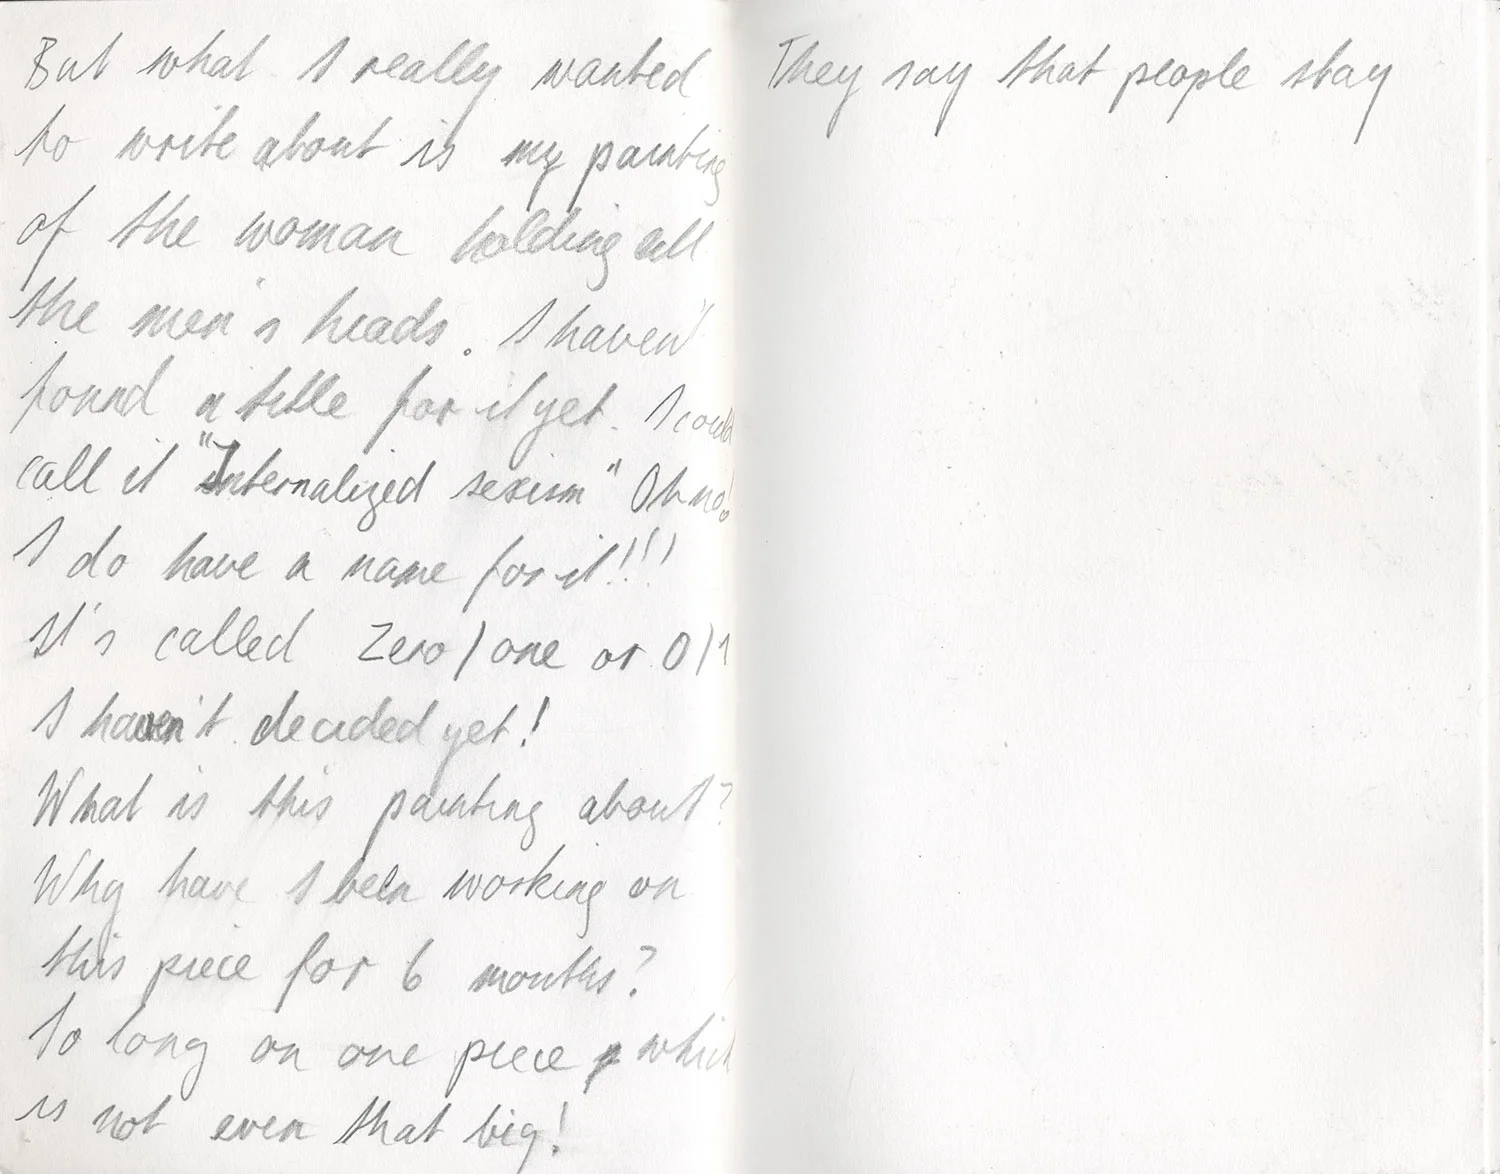 But what I really wanted
to write about is my painting
of the woman holding all
the men's heads. I haven't
found a title for it yet. I could
call it "Internalized sexism" Oh no!
I do have a name for it!!!
It's called Zero/one or 0/1
I haven't decided yet!
What is this painting about?
Why have I been working on
this piece for 6 months?
So long on one piece, which
is not even that big!
They say that people stay